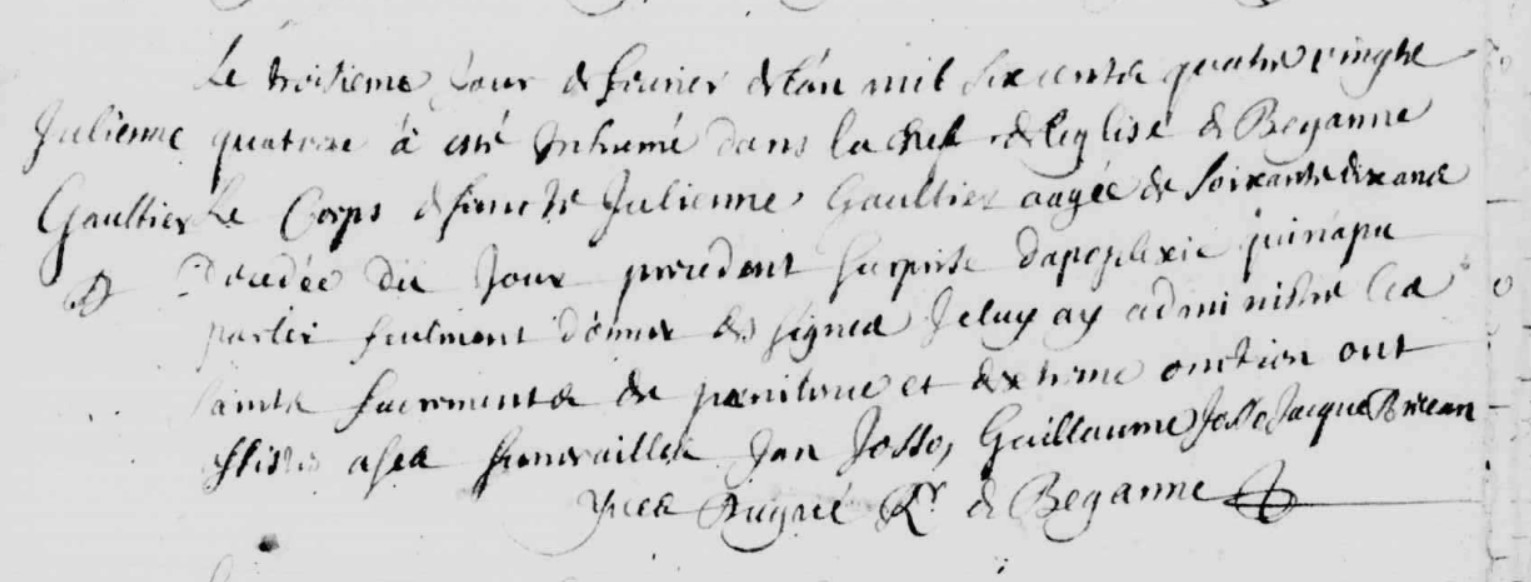 Le troisieme jour de febvrier de l'an mil six cents quatre vingts
Julienne quatorze à esté inhumé dans la chef de leglise de Beganne
Gaultier Le Corps de feuncte Julienne Gaultier aagée de soixante dix ans
decedée du jour precedent surprise dapoplexie qui n'a pu
parler seulment donner des signes Je luy ay administré les
saints sacrements de penitence et dextreme onction ont
assistes a ses funerailles Jan Josso, Guillaume Josso Jacque
Yves R.r de Beganne